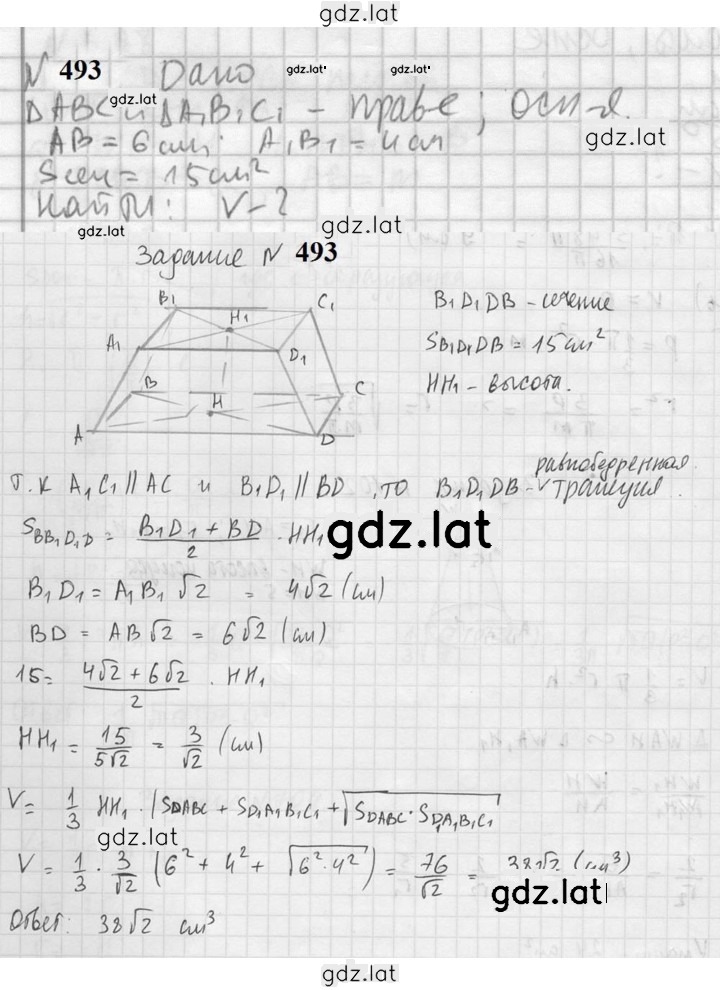 gdz.lat
№ 493 Дано gdz.lat gdz.lat
ΔABC и ΔA₁B₁C₁ – прав-е, осн-я.
gdz.lat
gdz.lat
AB = 6 см; A₁B₁ = 4 см
Sсеч = 15 см²
Найти: V – ?
gdz.lat
Задание № 493
B₁ C₁
H₁
A₁ D₁
B C
H
A D
B₁D₁DB – сечение
S B₁D₁DB = 15 см²
HH₁ – высота.
т. к A₁C₁ || AC и B₁D₁ || BD, то B₁D₁DB – равнобедренная трапеция.
S BB₁D₁D = (B₁D₁ + BD)/2 · HH₁
gdz.lat
B₁D₁ = A₁B₁√2 = 4√2 (см)
BD = AB√2 = 6√2 (см)
15 = (4√2 + 6√2)/2 · HH₁
HH₁ = 15/5√2 = 3/√2 (см)
V = 1/3 HH₁ · (S DABC + S D₁A₁B₁C₁ + √(S DABC · S D₁A₁B₁C₁)
gdz.lat
V = 1/3 · 3/√2 (6² + 4² + √(6² · 4²)) = 76/√2 = 38√2 (см³)
gdz.lat
Ответ: 38√2 см³
gdz.lat